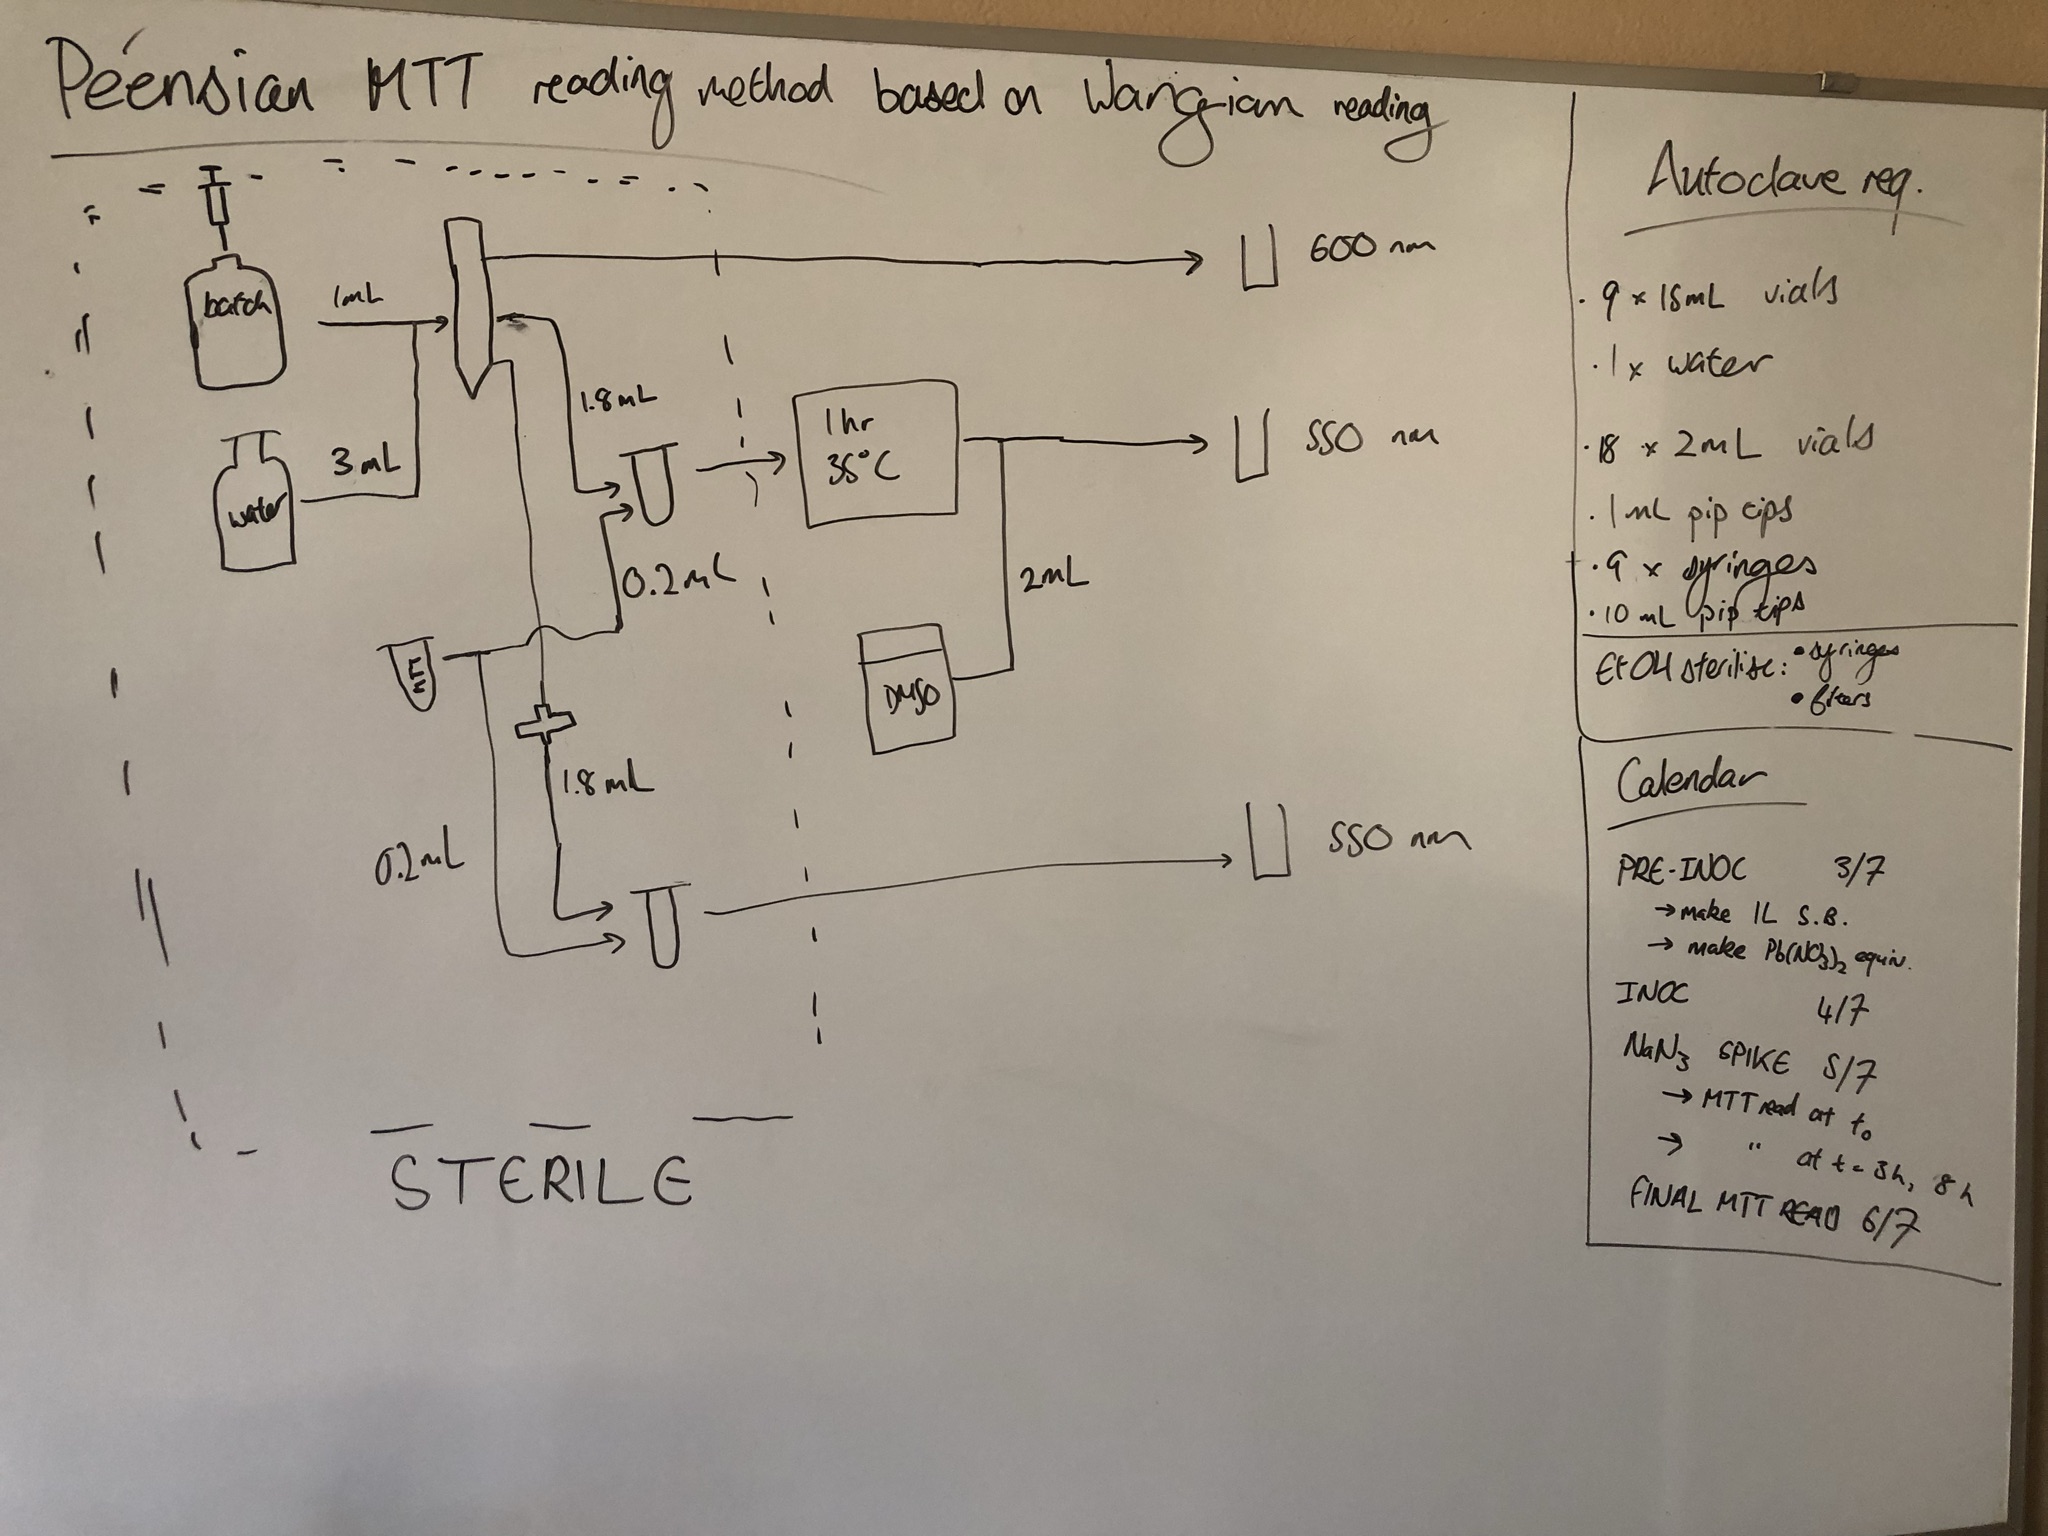 Péensian MTT reading method based on Wangian reading
batch
1mL
600 nm
water
3mL
1.8mL
1hr
35°C
550 nm
0.2mL
2mL
DMSO
1.8mL
0.2mL
550 nm
STERILE
Autoclave req.
· 9 x 15mL vials
· 1 x water
· 18 x 2mL vials
· 1mL pip tips
· 9 x syringes
· 10 mL pip tips
EtOH sterilise: • syringes
• filters
Calendar
PRE-INOC 3/7
→ make 1L S.B.
→ make Pb(NO3)2 equiv.
INOC 4/7
NaN3 SPIKE 5/7
→ MTT read at t0
→ " at t = 3h, 8h
FINAL MTT READ 6/7